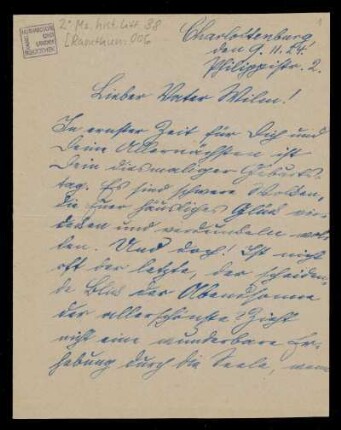 2° Ms. hist. litt. 38
[Ramthun: 006
Charlottenburg
den 9. 11. 24.
Philippistr. 2.
Lieber Vater Wilm!
In ernster Zeit für Dich und
Deine Allernächsten ist
Dein diesmaliger Geburts-
tag. Es sind schwere Wolken,
die Euer häusliches Glück
und verdunkeln wol-
len. Und doch! Ist nicht
oft der letzte, der scheiden-
de Blick der Abendsonne
der allerschönste? Zieht
nicht eine wunderbare Er-
hebung durch die Seele, wenn